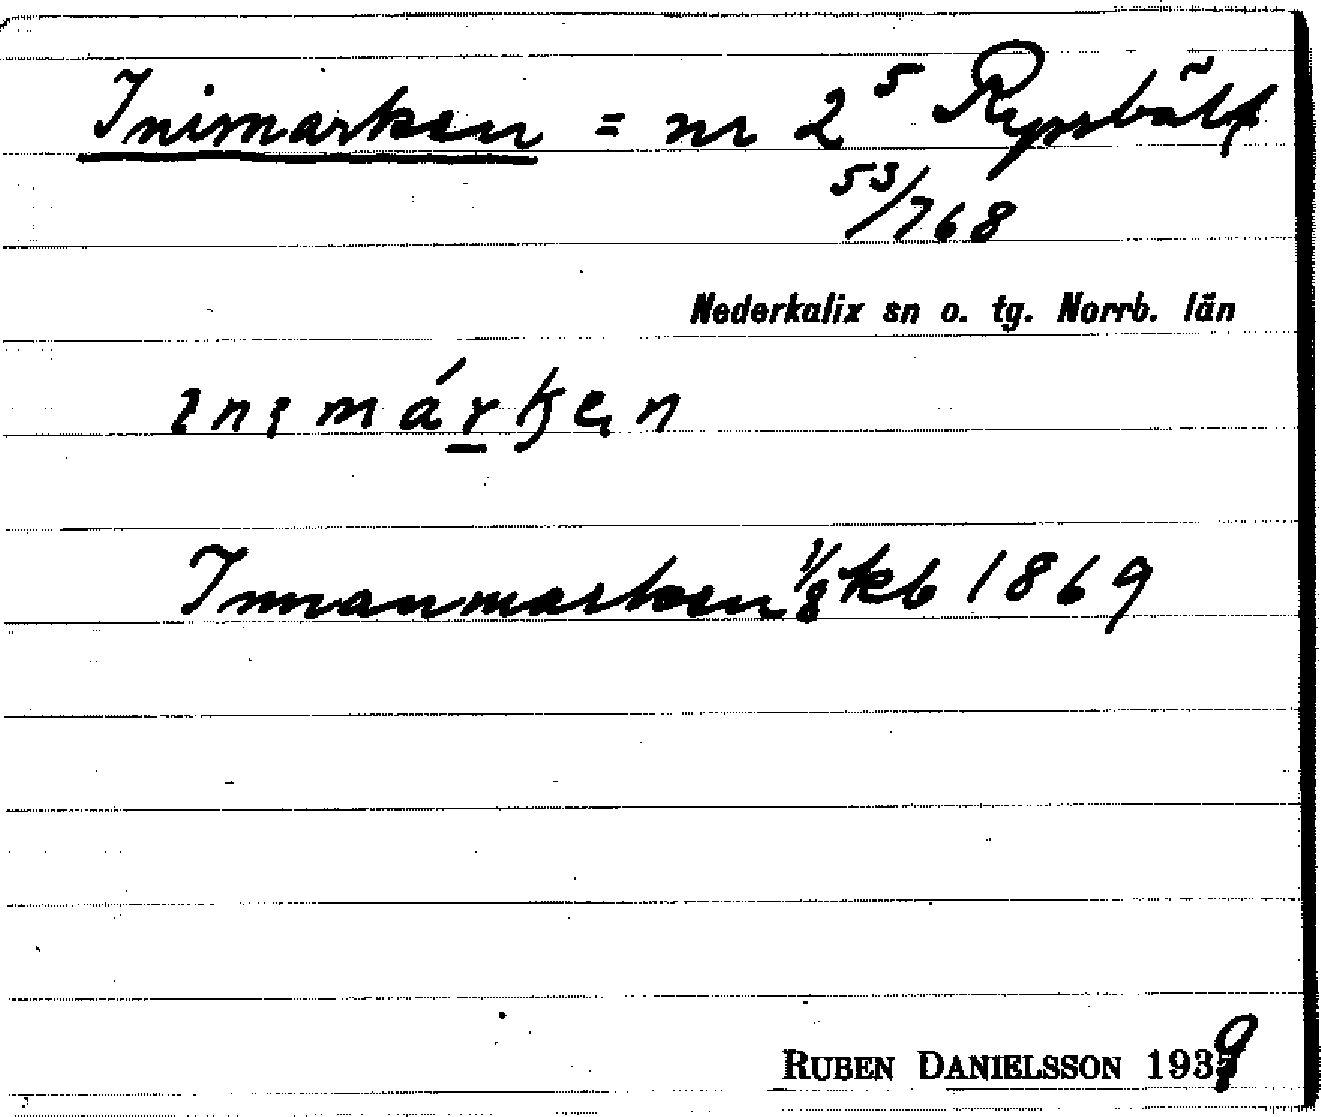 Inimarken = nr 2⁵ Rysbält
53/768
Nederkalix sn o. tg. Norrb. län
Innanmarken 1/8 kb 1869
RUBEN DANIELSSON 1939